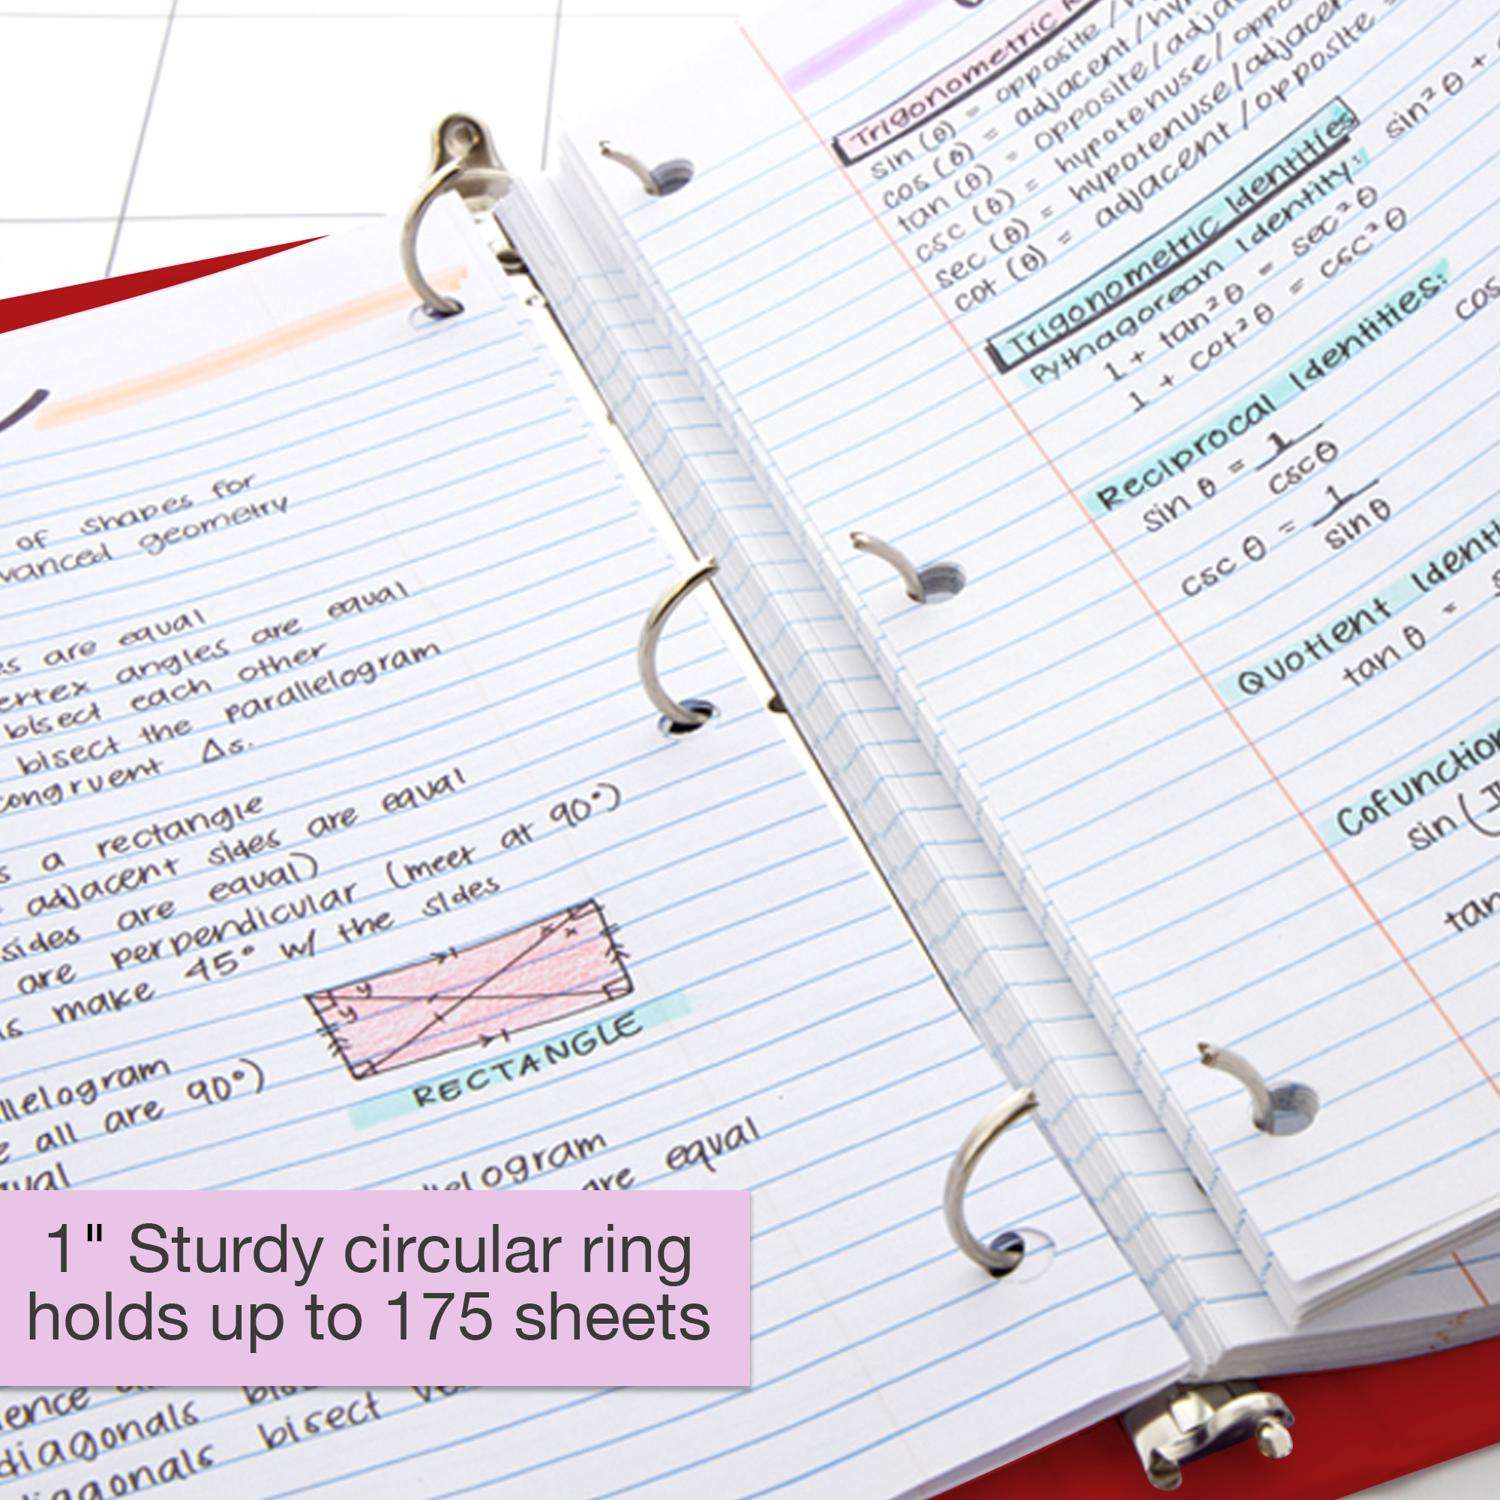 of shapes for
vanced geometry
es are equal
ertex angles are equal
bisect each other
bisect the parallelogram
congruent Δs.
s a rectangle
adjacent sides are equal
sides are equal)
are perpendicular (meet at 90°)
s make 45° w/ the sides
y
y
x
x
RECTANGLE
llelogram
e all are 90°)
qual
llelogram
are equal
1" Sturdy circular ring
holds up to 175 sheets
ence
diagonals
diagonals bisect
Trigonometric
sin (θ) = opposite /
cos (θ) = adjacent /
tan (θ) = opposite / adja
csc (θ) = hypotenuse / oppo
sec (θ) = hypotenuse / adjacen
cot (θ) = adjacent / opposite
Trigonometric Identities
Pythagorean Identity: sin²θ +
1 + tan²θ = sec²θ
1 + cot²θ = csc²θ
Reciprocal Identities: cos
sin θ = 1/cscθ
csc θ = 1/sinθ
Quotient Identi
tan θ =
Cofunction
sin (
tan